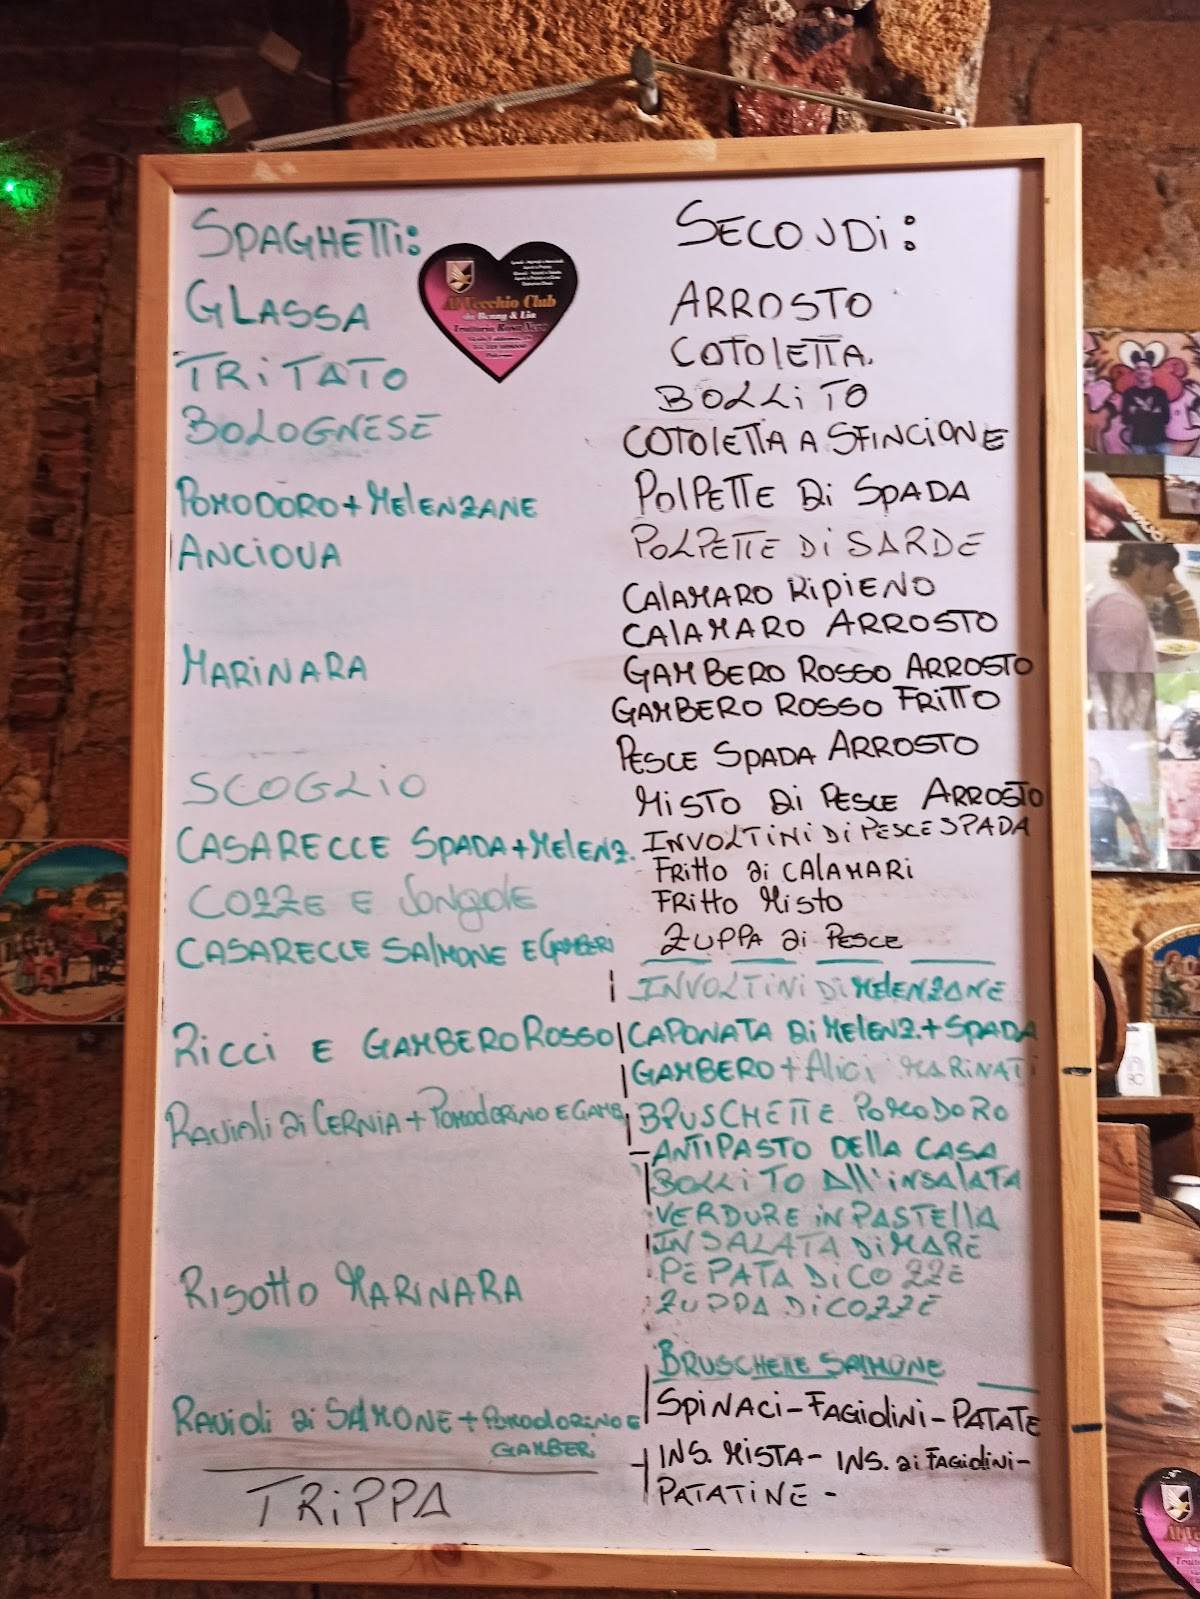 SPAGHETTI:
GLASSA
TRITATO
BOLOGNESE
POMODORO + MELENZANE
ANCIOVA
MARINARA
SCOGLIO
CASARECCE SPADA + MELENZ.
COZZE E VONGOLE
CASARECCE SALMONE E GAMBERI
RICCI E GAMBERO ROSSO
RAVIOLI DI CERNIA + POMODORINO E GAMB
RISOTTO MARINARA
RAVIOLI DI SALMONE + POMODORINO E
GAMBERI
TRIPPA
Al Vecchio Club
da Benny & Lia
Trattoria Rosa Nero
SECONDI:
ARROSTO
COTOLETTA.
BOLLITO
COTOLETTA A SFINCIONE
POLPETTE DI SPADA
POLPETTE DI SARDE
CALAMARO RIPIENO
CALAMARO ARROSTO
GAMBERO ROSSO ARROSTO
GAMBERO ROSSO FRITTO
PESCE SPADA ARROSTO
MISTO DI PESCE ARROSTO
INVOLTINI DI PESCE SPADA
FRITTO DI CALAMARI
FRITTO MISTO
ZUPPA DI PESCE
INVOLTINI DI MELENZANE
CAPONATA DI MELENZ. + SPADA
GAMBERO + ALICI MARINATI
BRUSCHETTE POMODORO
- ANTIPASTO DELLA CASA
BOLLITO ALL'INSALATA
VERDURE IN PASTELLA
INSALATA DI MARE
PEPATA DI COZZE
ZUPPA DI COZZE
BRUSCHETTE SALMONE
SPINACI - FAGIOLINI - PATATE
INS. MISTA - INS. DI FAGIOLINI -
PATATINE -